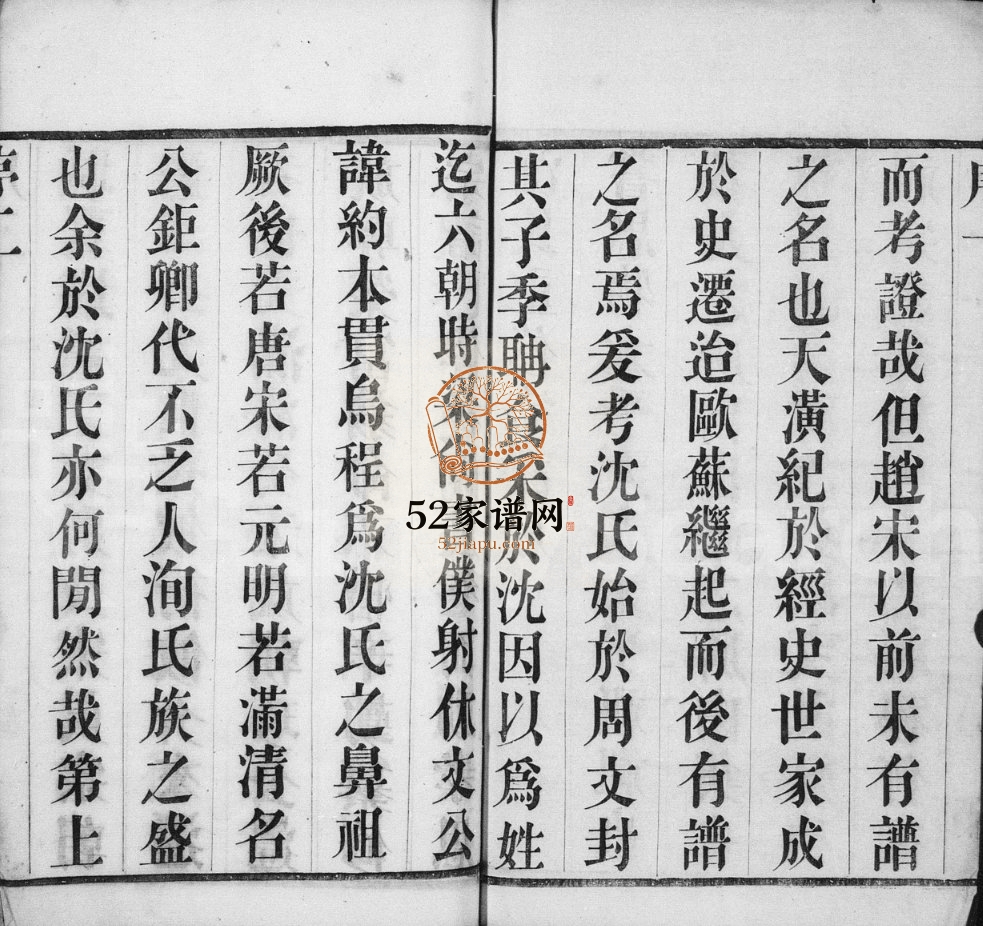 而考證哉但趙宋以前未有譜
之名也天潢紀於經史世家成
於史遷迨歐蘇繼起而後有譜
之名焉爰考沈氏始於周文封
其子季聃食采於沈因以爲姓
迄六朝時尚僕射休文公
諱約本貫烏程爲沈氏之鼻祖
厥後若唐宋若元明若滿清名
公鉅卿代不乏人洵氏族之盛
也余於沈氏亦何閒然哉第上
52家谱网
52jiapu.com